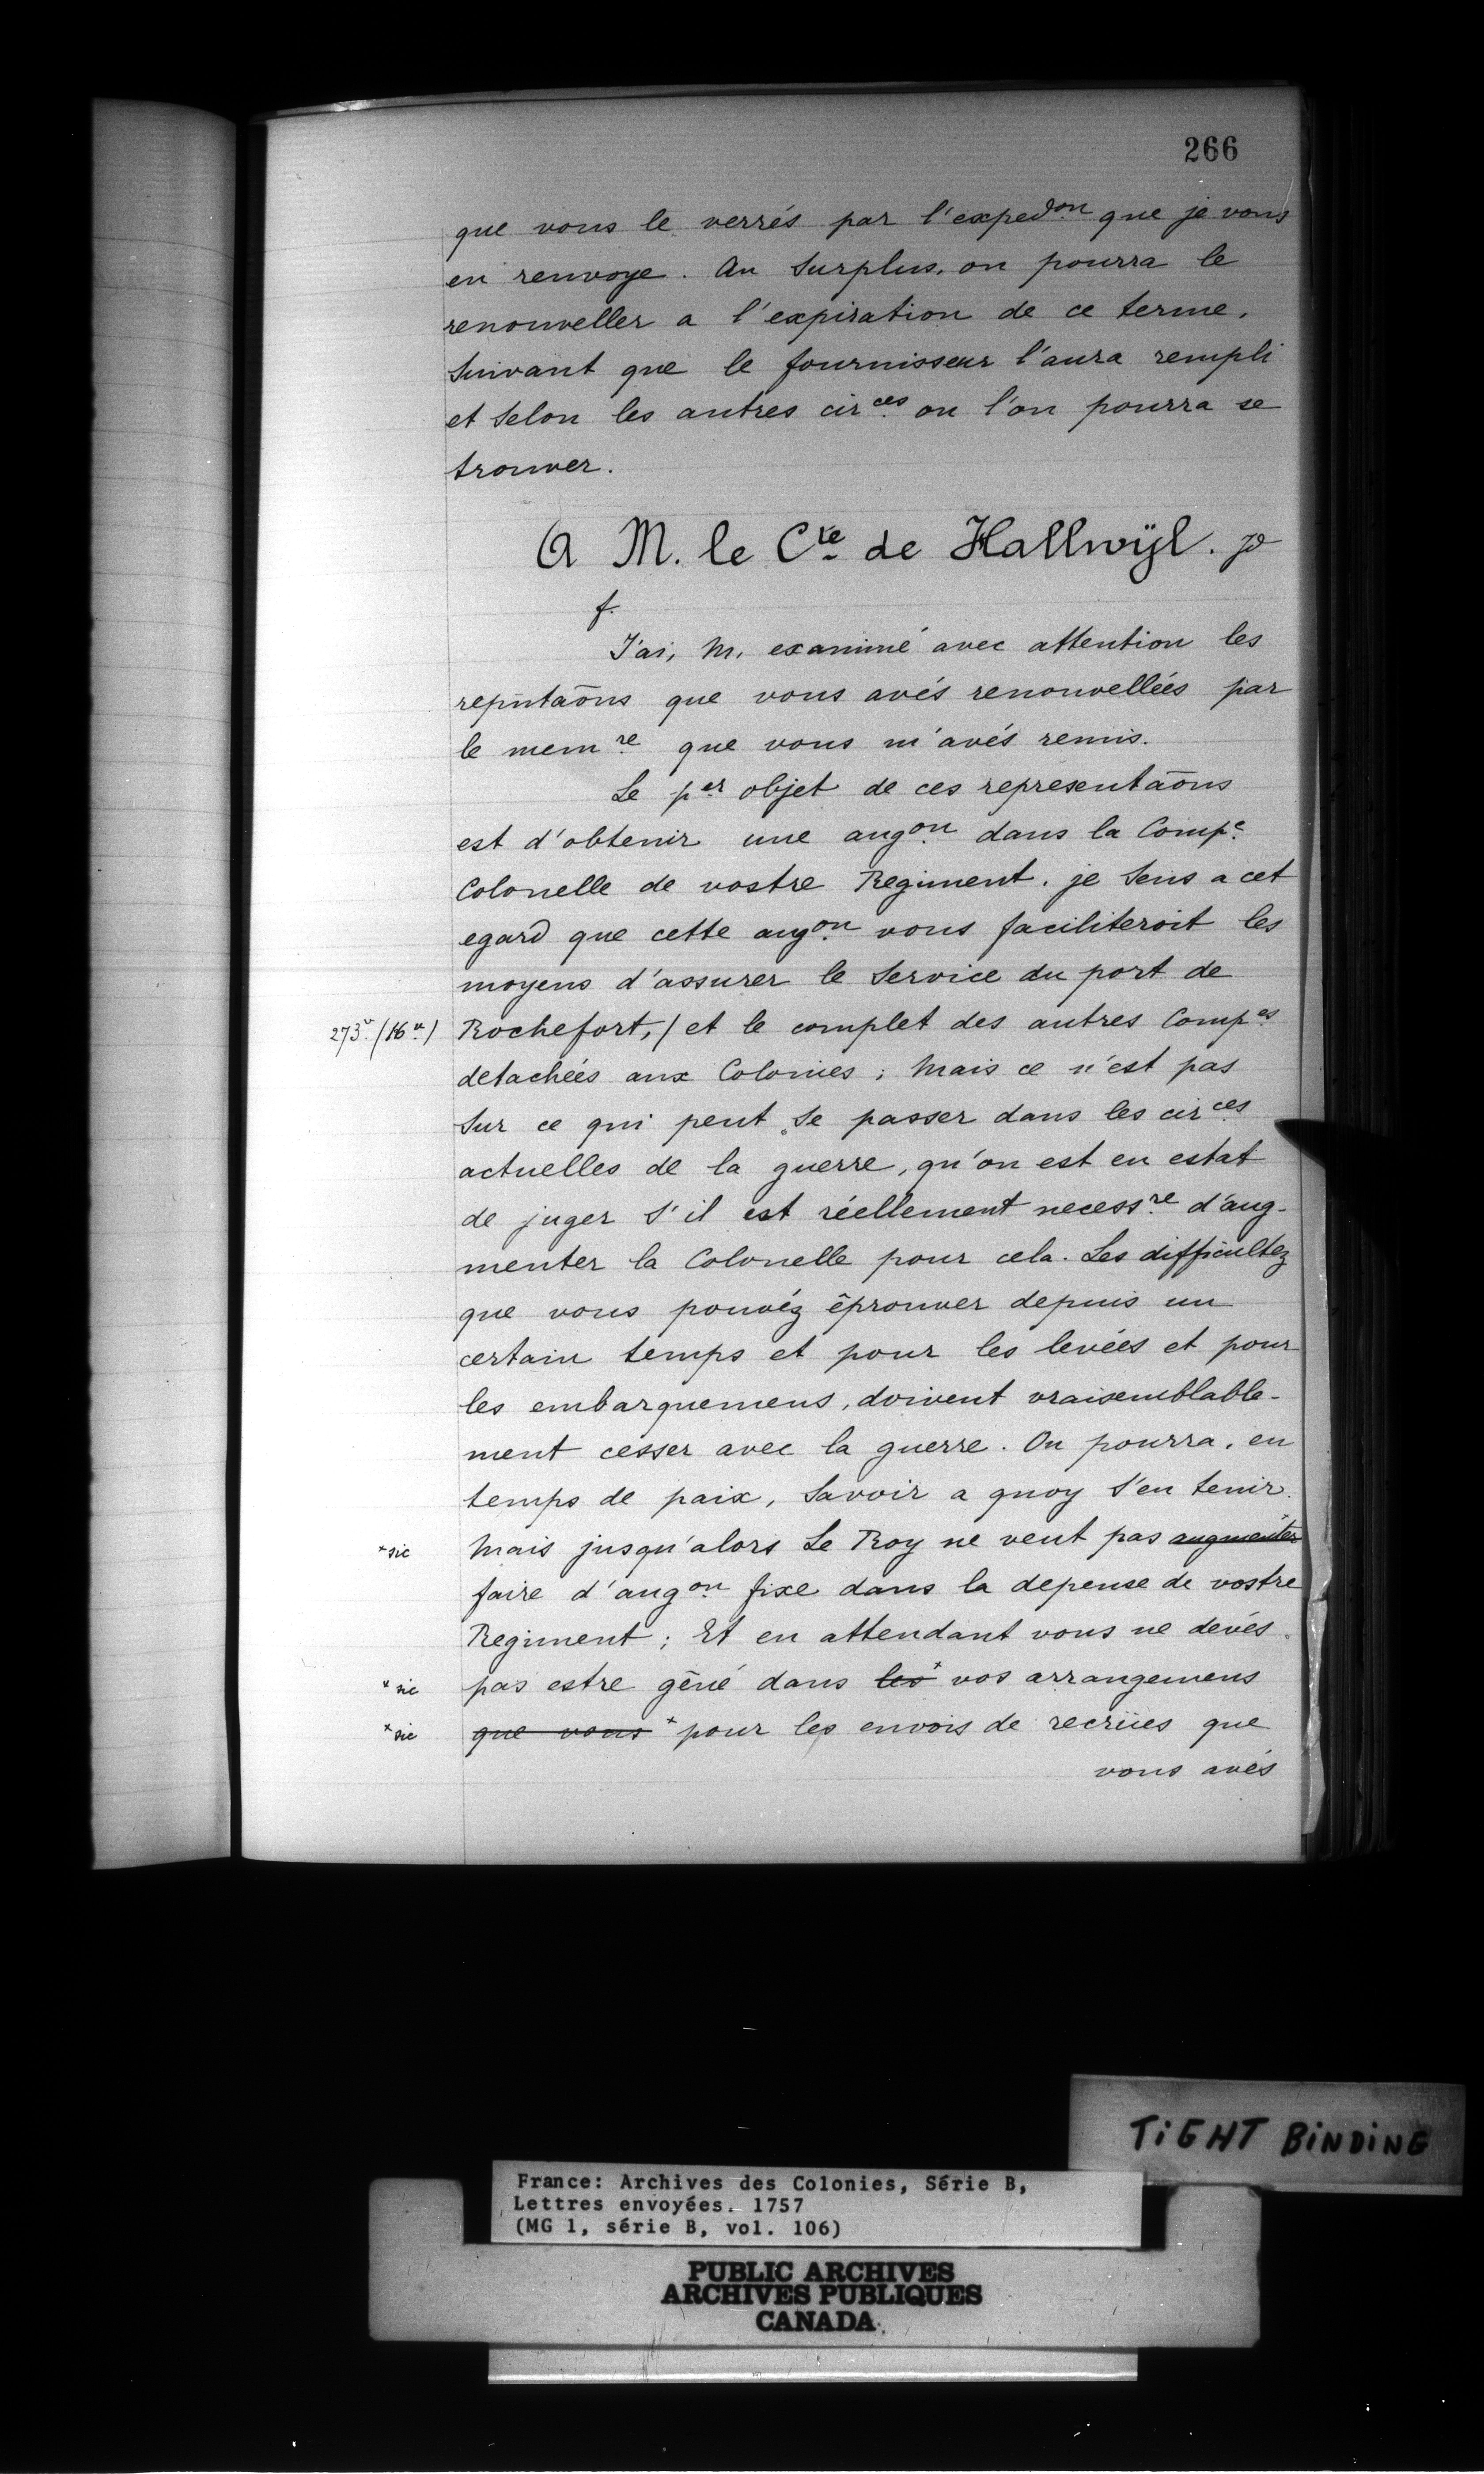 266
que vous le verrés par l'exped^on que je vous
en renvoye. Au Surplus, on pourra le
renouveller a l'expiration de ce terme,
Suivant que le fournisseur l'aura rempli
et Selon les autres cir^ces ou l'on pourra se
trouver.
A M. le C^te de Hallwÿl.
f.
J'ai, M. examiné avec attention les
repntaōns que vous avés renouvellées par
le mem^re que vous m'avés remis.
Le p^er objet de ces representaōns
est d'obtenir une aug^on dans la Comp^e
Colonelle de vostre Regiment. je Sens a cet
egard que cette aug^on vous faciliteroit les
moyens d'assurer le Service du port de
273^v (16^v) Rochefort,/ et le complet des autres Comp^es
detachées aux Colonies; Mais ce n'est pas
Sur ce qui peut Se passer dans les cir^ces
actuelles de la guerre, qu'on est en estat
de juger S'il est réellement necess^re d'aug-
menter la Colonelle pour cela. Les difficultez
que vous pouvéz éprouver depuis un
certain temps et pour les levées et pour
les embarquemens, doivent vraisemblable-
ment cesser avec la guerre. On pourra, en
temps de paix, Savoir a quoy S'en tenir.
*sic Mais jusqu'alors Le Roy ne veut pas augmenter
faire d'aug^on fixe dans la depense de vostre
Regiment; Et en attendant vous ne devés
*sic pas estre gêné dans les* vos arrangemens
*sic que vous* pour les envois de recrües que
vous avés
TIGHT BINDING
France: Archives des Colonies, Série B,
Lettres envoyées. 1757
(MG 1, série B, vol. 106)
PUBLIC ARCHIVES
ARCHIVES PUBLIQUES
CANADA